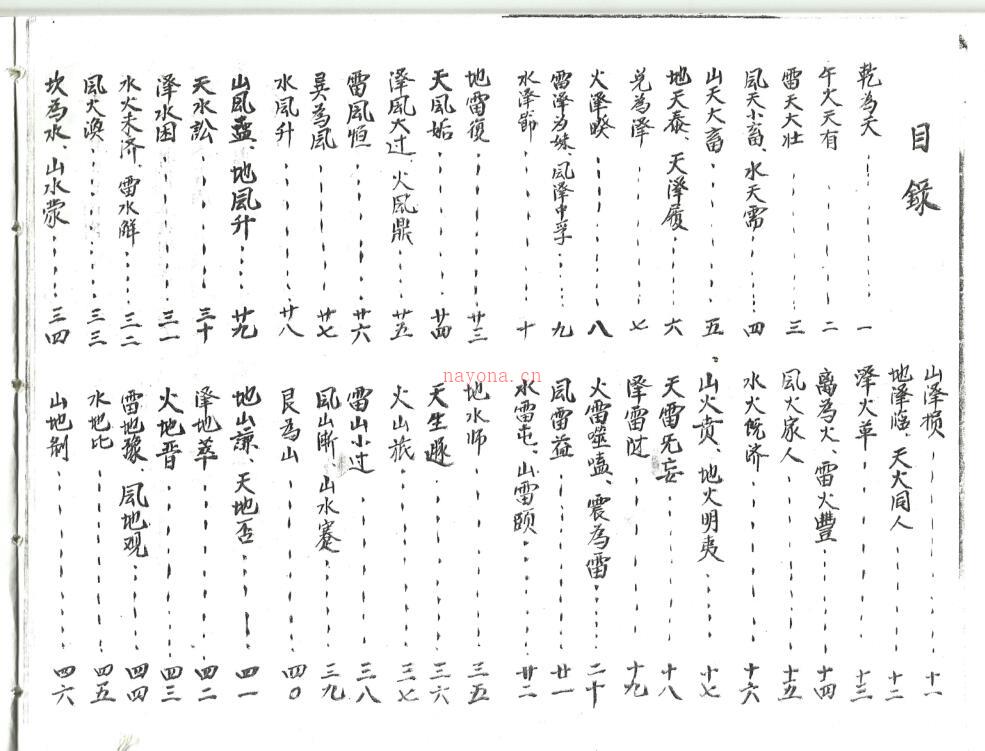 目錄
乾為天 一
午火天有 二
雷天大壮 三
風天小畜、水天需 四
山天大畜 五
地天泰、天澤履 六
兑為泽 七
火泽睽 八
雷泽为妹、風泽中孚 九
水泽節 十
山泽损 十一
地泽临、天火同人 十二
泽火革 十三
离為火、雷火豐 十四
風火家人 十五
水火既济 十六
山火贲、地火明夷 十七
天雷无妄 十八
泽雷随 十九
火雷噬嗑、震為雷 二十
風雷益 廿一
水雷屯、山雷颐 廿二
地雷復 廿三
天風姤 廿四
泽風大过、火風鼎 廿五
雷風恒 廿六
巽為風 廿七
水風升 廿八
山風蠱、地風升 廿九
天水訟 三十
泽水困 三一
水火未济、雷水解 三二
風火涣 三三
坎為水、山水蒙 三四
地水师 三五
天生遯 三六
火山旅 三七
雷山小过 三八
風山渐、山水蹇 三九
艮為山 四〇
地山谦、天地否 四一
泽地萃 四二
火地晋 四三
雷地豫、風地观 四四
水地比 四五
山地剝 四六
nayona.cn